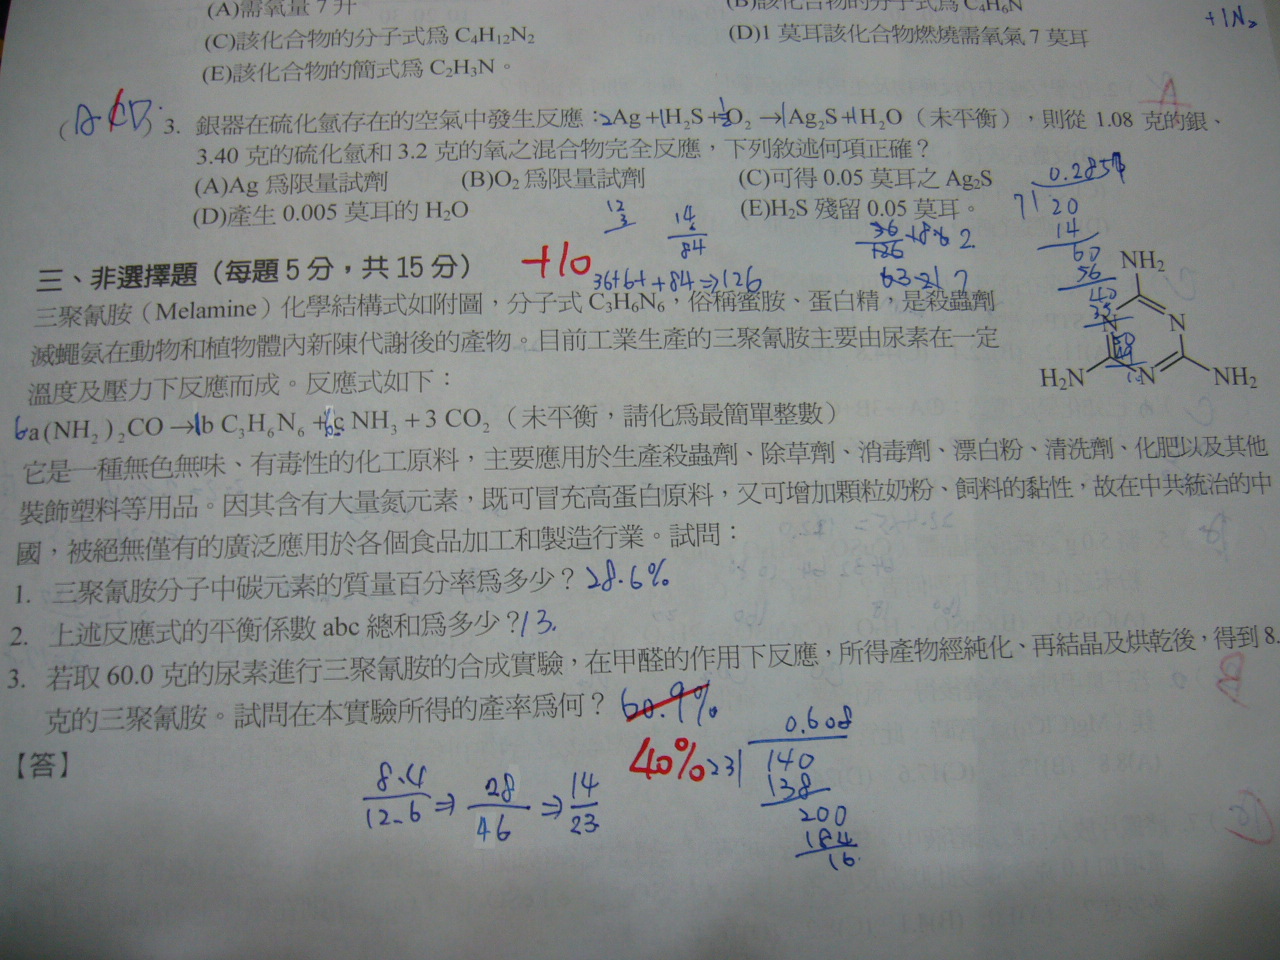 (A)需氧量 7 升
(B)該化合物的分子式爲 C₄H₆N
+1N₂
(C)該化合物的分子式爲 C₄H₁₂N₂
(D)1 莫耳該化合物燃燒需氧氣 7 莫耳
(E)該化合物的簡式爲 C₂H₃N。
3. 銀器在硫化氫存在的空氣中發生反應:2Ag+1H₂S+½O₂→1Ag₂S+1H₂O(未平衡),則從 1.08 克的銀、
3.40 克的硫化氫和 3.2 克的氧之混合物完全反應,下列敘述何項正確?
(A)Ag 爲限量試劑
(B)O₂ 爲限量試劑
(C)可得 0.05 莫耳之 Ag₂S
(D)產生 0.005 莫耳的 H₂O
(E)H₂S 殘留 0.05 莫耳。
12
3
14
6
84
三、非選擇題(每題 5 分,共 15 分)
+10
36+6+84⇒126
三聚氰胺(Melamine)化學結構式如附圖,分子式 C₃H₆N₆,俗稱蜜胺、蛋白精,是殺蟲劑
滅蠅氨在動物和植物體內新陳代謝後的產物。目前工業生產的三聚氰胺主要由尿素在一定
溫度及壓力下反應而成。反應式如下:
NH₂
N
N
N
H₂N
NH₂
6a(NH₂)₂CO→1b C₃H₆N₆+6c NH₃+3 CO₂(未平衡,請化爲最簡單整數)
它是一種無色無味、有毒性的化工原料,主要應用於生產殺蟲劑、除草劑、消毒劑、漂白粉、清洗劑、化肥以及其他
裝飾塑料等用品。因其含有大量氮元素,既可冒充高蛋白原料,又可增加顆粒奶粉、飼料的黏性,故在中共統治的中
國,被絕無僅有的廣泛應用於各個食品加工和製造行業。試問:
1. 三聚氰胺分子中碳元素的質量百分率爲多少?28.6%
2. 上述反應式的平衡係數 abc 總和爲多少?13.
3. 若取 60.0 克的尿素進行三聚氰胺的合成實驗,在甲醛的作用下反應,所得產物經純化、再結晶及烘乾後,得到 8.
克的三聚氰胺。試問在本實驗所得的產率爲何?60.9%
40%
【答】
8.4/12.6⇒28/46⇒14/23
0.608
23 140
138
200
184
16